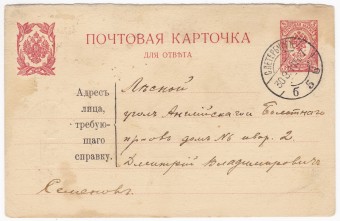 ПОЧТОВАЯ КАРТОЧКА
ДЛЯ ОТВѢТА
Адресъ
лица,
требую-
щаго
справку.
Лѣсной
уголъ Англійскаго и
пр-овъ домъ №6 квар. 2
Дмитрій Владимировичъ
Семеновъ